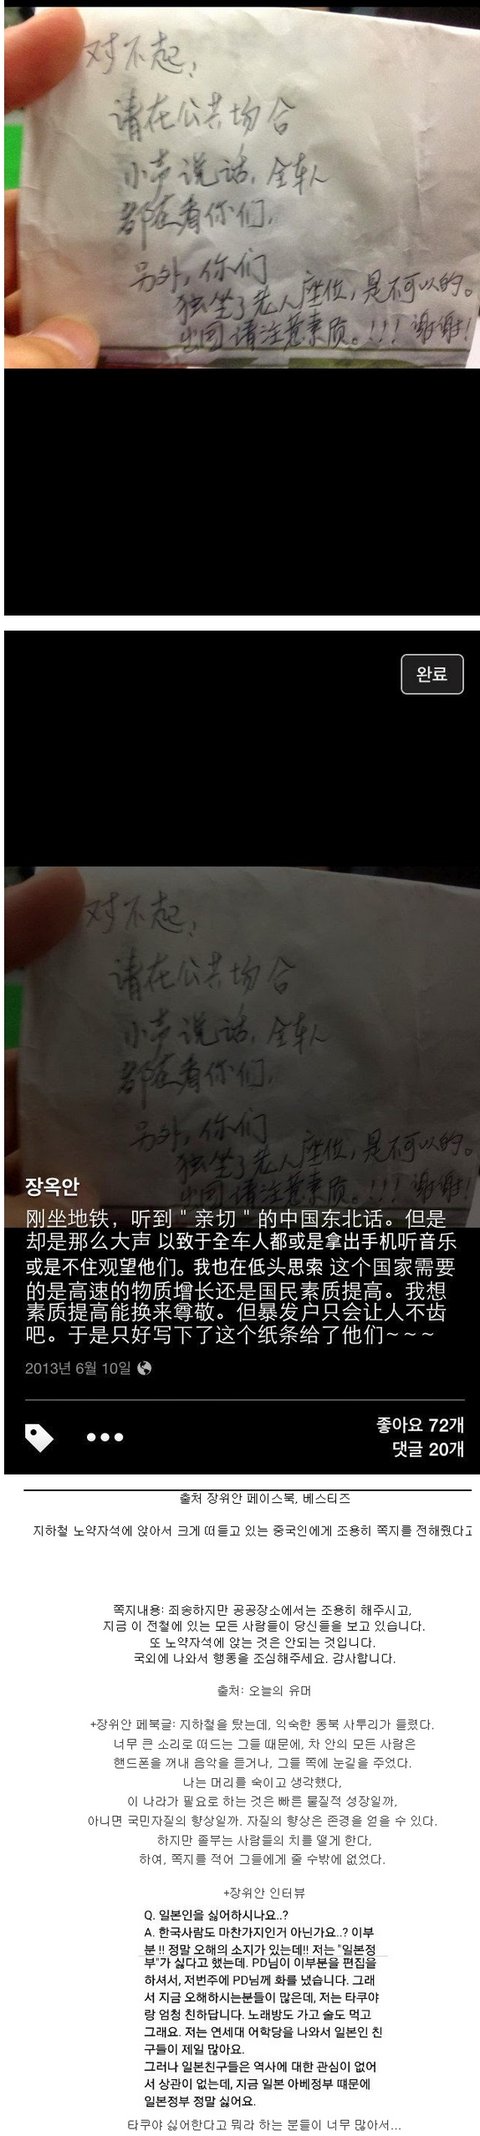 对不起，
请在公共场合
小声说话，全车人
都在看你们，
另外，你们
独坐了老人座位，是不可以的。
出国请注意素质。!!! 谢谢！
완료
对不起，
请在公共场合
小声说话，全车人
都在看你们，
另外，你们
独坐了老人座位，是不可以的。
出国请注意素质。!!! 谢谢！
장옥안
刚坐地铁，听到＂亲切＂的中国东北话。但是
却是那么大声 以致于全车人都或是拿出手机听音乐
或是不住观望他们。我也在低头思索 这个国家需要
的是高速的物质增长还是国民素质提高。我想
素质提高能换来尊敬。但暴发户只会让人不齿
吧。于是只好写下了这个纸条给了他们~~~
2013년 6월 10일
좋아요 72개
댓글 20개
출처 장위안 페이스북, 베스티즈
지하철 노약자석에 앉아서 크게 떠들고 있는 중국인에게 조용히 쪽지를 전해줬다고
쪽지내용: 죄송하지만 공공장소에서는 조용히 해주시고,
지금 이 전철에 있는 모든 사람들이 당신들을 보고 있습니다.
또 노약자석에 앉는 것은 안되는 것입니다.
국외에 나와서 행동을 조심해주세요. 감사합니다.
출처: 오늘의 유머
+장위안 페북글: 지하철을 탔는데, 익숙한 동북 사투리가 들렸다.
너무 큰 소리로 떠드는 그들 때문에, 차 안의 모든 사람은
핸드폰을 꺼내 음악을 듣거나, 그들 쪽에 눈길을 주었다.
나는 머리를 숙이고 생각했다,
이 나라가 필요로 하는 것은 빠른 물질적 성장일까,
아니면 국민자질의 향상일까. 자질의 향상은 존경을 얻을 수 있다.
하지만 졸부는 사람들의 치를 떨게 한다,
하여, 쪽지를 적어 그들에게 줄 수밖에 없었다.
+장위안 인터뷰
Q. 일본인을 싫어하시나요..?
A. 한국사람도 마찬가지인거 아닌가요..? 이부
분 !! 정말 오해의 소지가 있는데!! 저는 "일본정
부"가 싫다고 했는데. PD님이 이부분을 편집을
하셔서, 저번주에 PD님께 화를 냈습니다. 그래
서 지금 오해하시는분들이 많은데, 저는 타쿠야
랑 엄청 친하답니다. 노래방도 가고 술도 먹고
그래요. 저는 연세대 어학당을 나와서 일본인 친
구들이 제일 많아요.
그러나 일본친구들은 역사에 대한 관심이 없어
서 상관이 없는데, 지금 일본 아베정부 때문에
일본정부 정말 싫어요.
타쿠야 싫어한다고 뭐라 하는 분들이 너무 많아서...